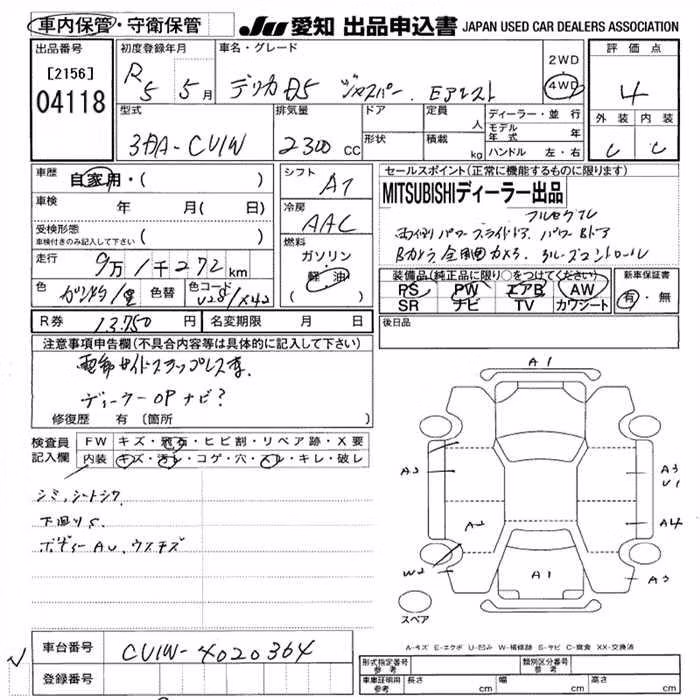 車内保管・守衛保管
JU 愛知 出品申込書 JAPAN USED CAR DEALERS ASSOCIATION
出品番号
[2156]
04118
初度登録年月
R5 5月
車名・グレード
デリカD5 ジャスパー
2WD
4WD
評価点
4
外装 内装
C C
型式
3DA-CV1W
排気量
2300 CC
ドア
形状
定員 人
積載 kg
ディーラー・並行
モデル年式 年
ハンドル 左・右
車歴
自家用・( )
車検 年 月( 日)
受検形態
車検付きのみ記入して下さい ( )
走行
9万1千272km
色
ガンメタ/黒
色替
色コード
U28/X42
シフト
AT
冷房
AAC
燃料
ガソリン
軽油
( )
セールスポイント(正常に機能するものに限ります)
MITSUBISHIディーラー出品
フルセグTV
両側パワースライドドア、パワーBドア
Bカメラ 全周囲カメラ、クルーズコントロール
装備品(純正品に限り○をつけてください)
PS PW エアB AW
SR ナビ TV カワシート
新車保証書
有・無
R券 13.750円 名変期限 月 日
後日品
注意事項申告欄(不具合内容等は具体的に記入して下さい)
電動サイドステップレス車.
ディーラーOPナビ?
修復歴 有 〔箇所 〕
検査員記入欄
FW キズ・飛石・ヒビ割・リペア跡・X要
内装 キズ・汚レ・コゲ・穴・スレ・キレ・破レ
シミ、シートシワ
下回りS
ボディーAU、ウスキズ
A1
A3
A3
U1
A2
A4
W2
A1
A3
スペア
A-キズ E-エクボ U-凹み W-補修跡 S-サビ C-腐食 XX-交換済
車台番号
CV1W-4020364
登録番号
形式指定番号 参考
類別区分番号 参考
車庫証明用 参考 長さ cm 幅 cm 高さ cm